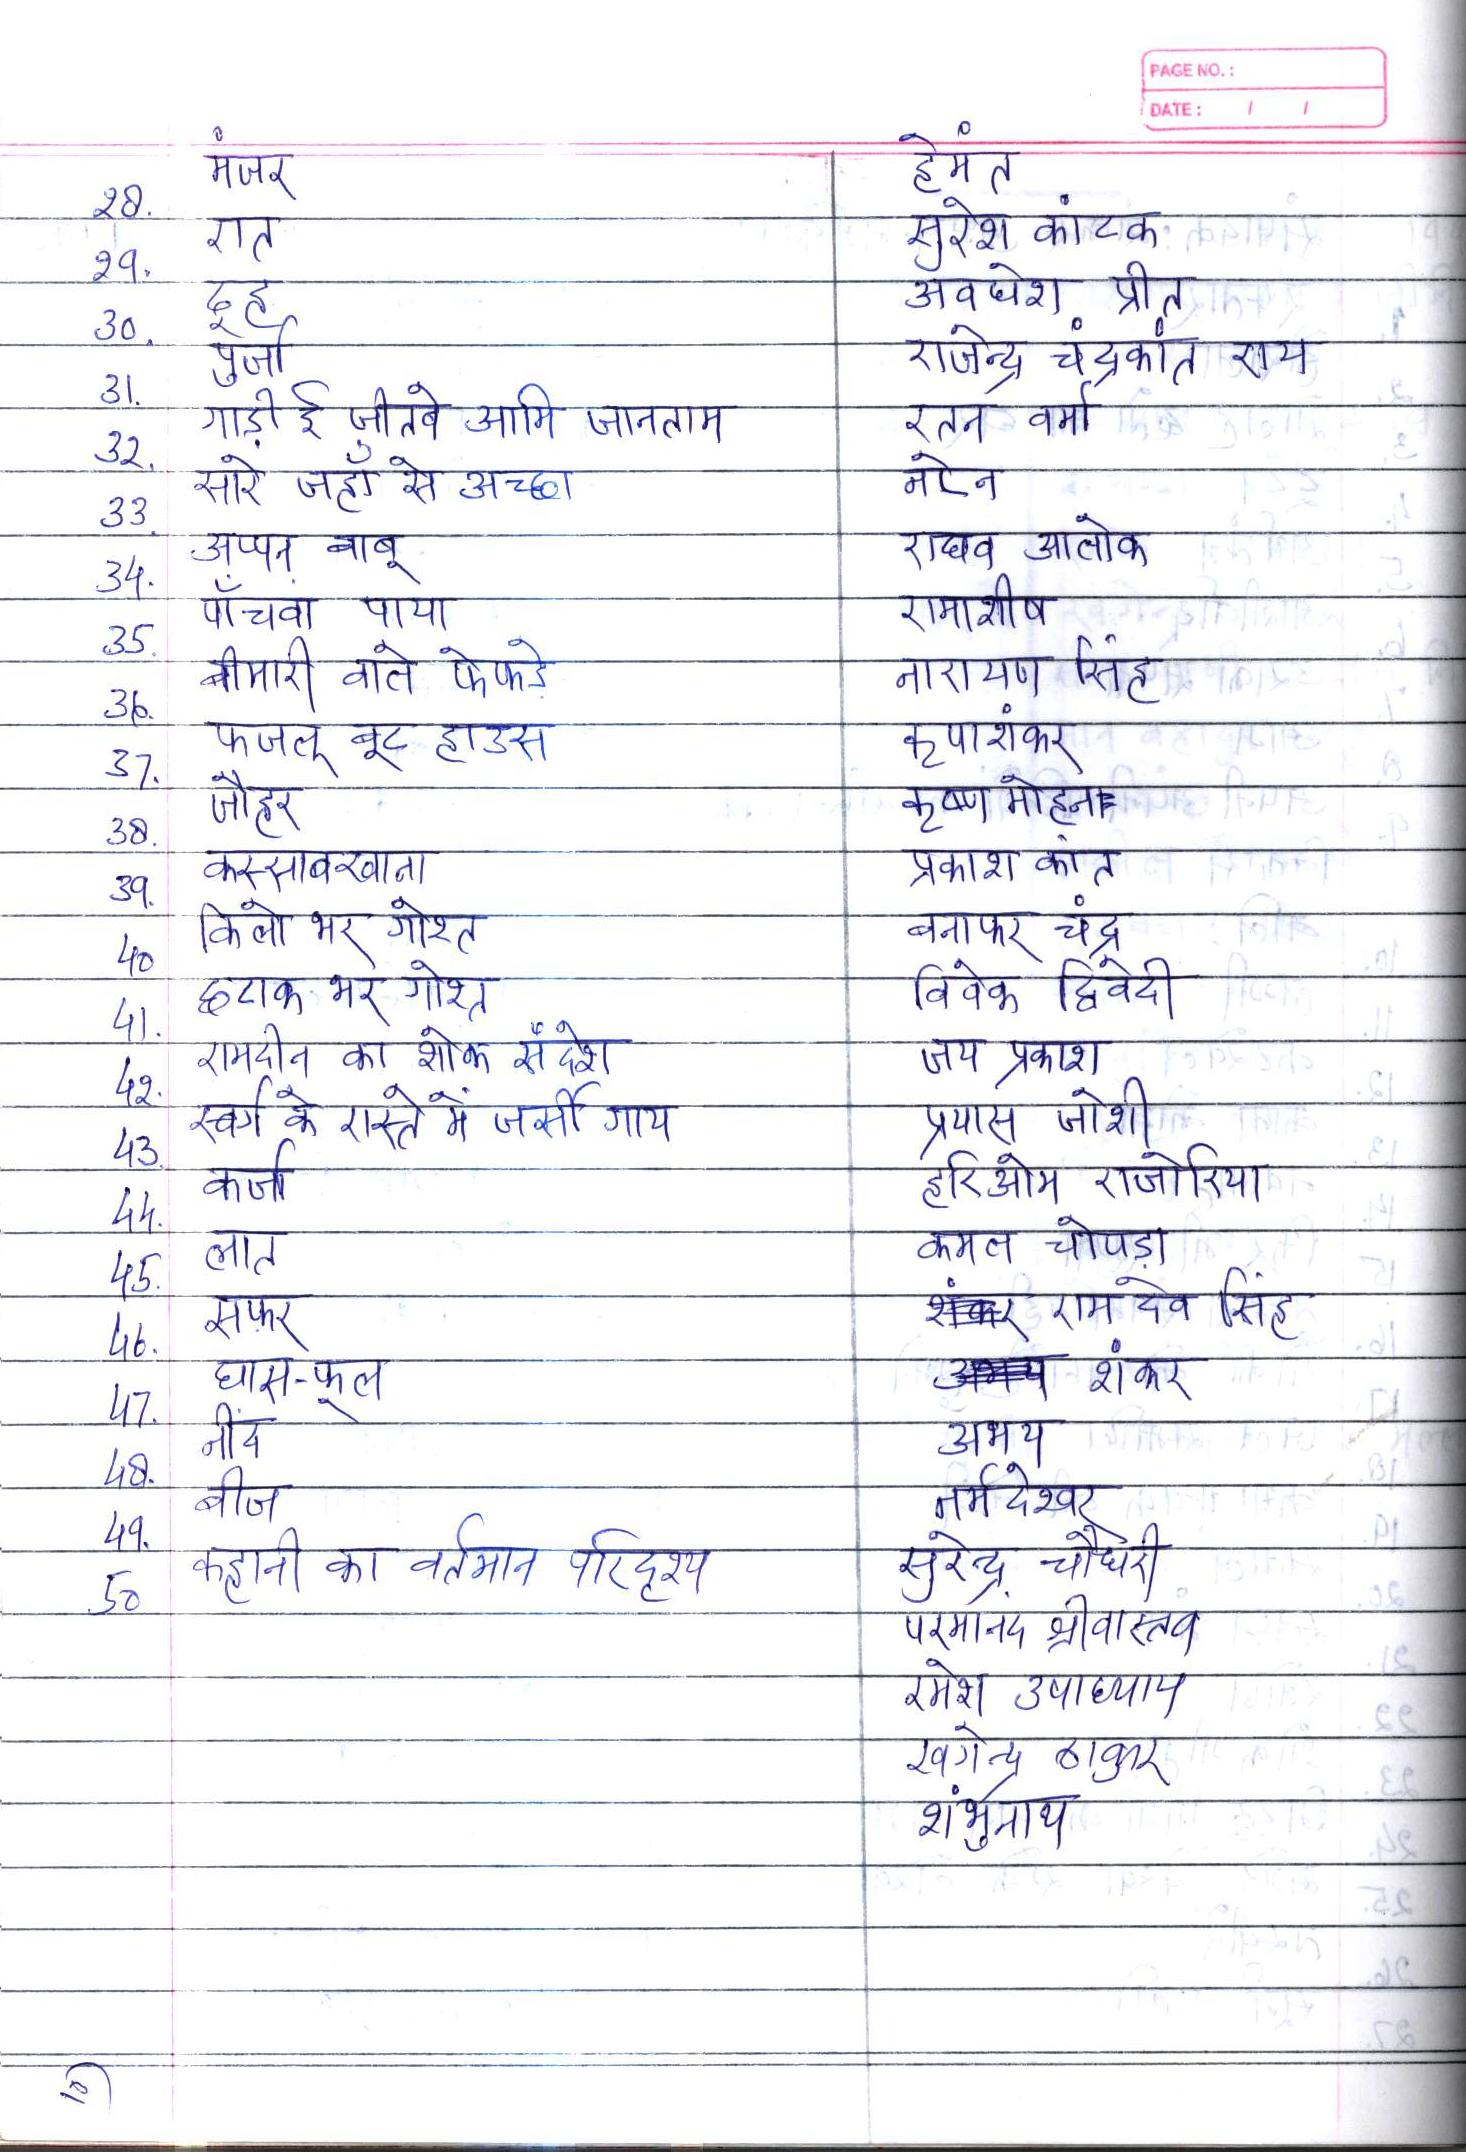 PAGE NO. :
DATE : / /
मंजर हेमंत
28. रात सुरेश कांटक
29. दूह अवधेश प्रीत
30. पुर्जा राजेन्द्र चंद्रकांत राय
31. गाड़ी ई जीतवे आमि जानताम रतन वर्मा
32. सारे जहाँ से अच्छा नरेन
33. अप्पन बाबू राघव आलोक
34. पाँचवा पाया रामाशीष
35. बीमारी वाले फेफड़े नारायण सिंह
36. फजलू बूट हाउस कृपाशंकर
37. जौहर कृष्ण मोहन
38. कस्साबखाना प्रकाश कांत
39. किलो भर गोश्त बनाफर चंद्र
40 छटाक भर गोश्त विवेक द्विवेदी
41. रामदीन का शोक संदेश जय प्रकाश
42. स्वर्ग के रास्ते में जर्सी गाय प्रयास जोशी
43. कर्जा हरिओम राजोरिया
44. लात कमल चोपड़ा
45. सफ़र शंकर राम देव सिंह
46. घास-फूल अभय शंकर
47. नींद अभय
48. बीज नर्मदेश्वर
49. कहानी का वर्तमान परिदृश्य सुरेन्द्र चौधेरी
50 परमानंद श्रीवास्तव
रमेश उपाध्याय
खगेन्द्र ठाकुर
शंभुनाथ